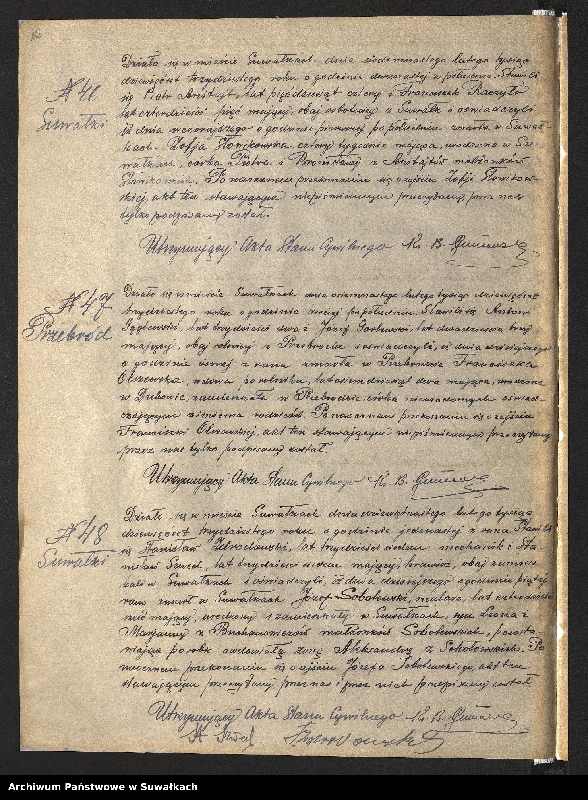 № 46
Suwałki
Działo się w mieście Suwałkach dnia siedemnastego lutego tysiąc
dziewięćset trzydziestego roku o godzinie dwunastej w południe. Stawili
się Piotr lat pięćdziesiąt cztery i Franciszek
lat czterdzieści pięć mający, obaj robotnicy z Suwałk i oświadczyli
iż dnia wczorajszego o godzinie pierwszej po południu zmarła w Suwał-
kach Zofja Ponikowska, cztery tygodnie mająca, urodzona w Su-
wałkach, córka Piotra i małżonków
Ponikowskich. Po naocznem przekonaniu się o zejściu Zofji Ponikow-
skiej, akt ten stawającym niepiśmiennym przeczytany, przez nas
tylko podpisany został.
Utrzymujący Akta Stanu Cywilnego Ks. B.
№ 47
Przebród
Działo się w mieście Suwałkach dnia osiemnastego lutego tysiąc dziewięćset
trzydziestego roku o godzinie po południu. Stawili się Antoni
lat trzydzieści dwa i Józef lat dwadzieścia trzy
mający, obaj rolnicy z Przebrodu i oświadczyli, iż dnia dzisiejszego
o godzinie ósmej z rana zmarła w Przebrodzie Franciszka
Olszewska, panna lat siedemdziesiąt dwa mająca, urodzona
w Dubowie, zamieszkała w Przebrodzie, córka niewiadomych oświad-
czającym z imienia rodziców. Po naocznem przekonaniu się o zejściu
Franciszki Olszewskiej, akt ten stawającym niepiśmiennym przeczytany
przez nas tylko podpisany został.
Utrzymujący Akta Stanu Cywilnego Ks. B.
№ 48
Suwałki
Działo się w mieście Suwałkach dnia dziewiętnastego lutego tysiąc
dziewięćset trzydziestego roku o godzinie jedenastej z rana. Stawili
się Stanisław Zdrocławski, lat trzydzieści siedem mechanik i Sta-
nisław lat trzydzieści siedem mający, obaj zamiesz-
kali w Suwałkach i oświadczyli, iż dnia dzisiejszego o godzinie piątej
rano zmarł w Suwałkach Józef Sobolewski, malarz, lat czterdzieści
mający, urodzony i zamieszkały w Suwałkach, syn Leona i
Marjanny z małżonków Sobolewskich, pozosta-
wiając po sobie owdowiałą żonę Aleksandrę z Sokołowskich. Po
naocznem przekonaniu się o zejściu Józefa Sobolewskiego, akt ten
stawającym przeczytany, przez nas i przez nich podpisany został
Utrzymujący Akta Stanu Cywilnego Ks. B.
Archiwum Państwowe w Suwałkach